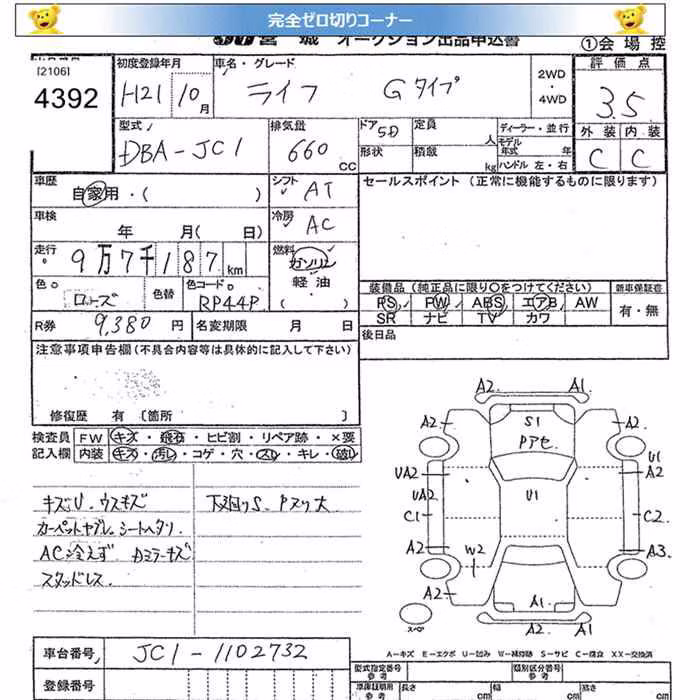 完全ゼロ切りコーナー
JU 宮城 オークション出品申込書 ①会場控
[2106]
4392
初度登録年月 H21 10月
車名・グレード ライフ Gタイプ
2WD・4WD
評価点 3.5
型式 DBA-JC1
排気量 660 cc
ドア 5D 定員 人
形状 積載 kg
ディーラー・並行
モデル年式 年
ハンドル 左・右
外装 内装
C C
車歴 自家用・( )
シフト AT
セールスポイント (正常に機能するものに限ります)
車検 年 月( 日)
冷房 AC
走行 9万7千187km
燃料 ガソリン 軽油 ( )
色 ローズ 色替 色コード RP44P
装備品 (純正品に限り〇をつけてください) 新車保証書
PS PW ABS エアB AW 有・無
SR ナビ TV カワ
R券 9,380 円 名変期限 月 日
後日品
注意事項申告欄 (不具合内容等は具体的に記入して下さい)
修復歴 有 [箇所 ]
検査員 FW キズ・飛石・ヒビ割・リペア跡・×要
記入欄 内装 キズ・汚れ・コゲ・穴・スレ・キレ・破れ
キズU. ウスキズ 下廻りS. Pヌリ大
カーペットヤブレ. シートヘタリ
AC冷えず. Dミラーキズ
スタッドレス
A2. A1.
A2 S1 A2.
Pアセ
U1
UA2 A2
UA2 U1
C1 C2
A2 W2 A3
A2 A1
A2. A1
スペア
A-キズ E-エクボ U-凹み W-補修跡 S-サビ C-腐食 XX-交換済
車台番号 JC1-1102732
登録番号
型式指定番号 参考 類別区分番号 参考
車庫証明用 参考 長さ cm 幅 cm 高さ cm